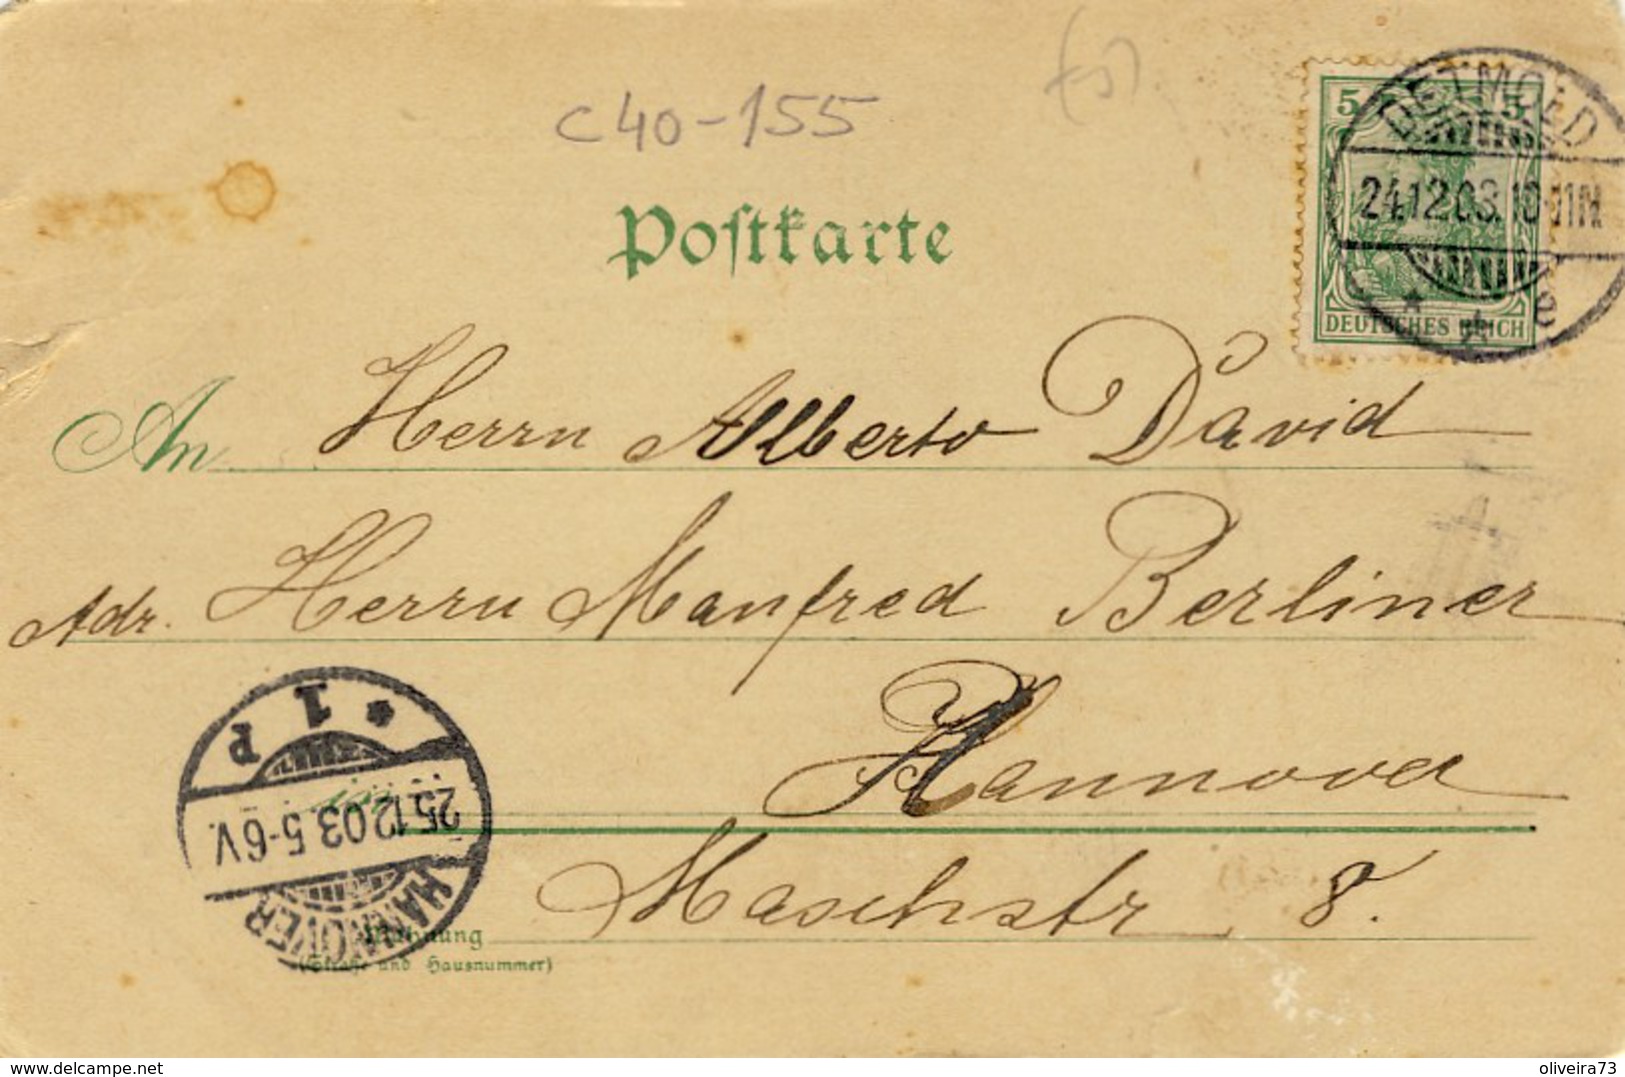 c40-155
Postkarte
5 5
DEUTSCHES REICH
DETMOLD
24.12.03.10-11N.
* * 2
An Herrn Alberto David
Adr. Herrn Manfred Berliner
in Hannover
Maschstr. 8.
Wohnung
(Straße und Hausnummer)
HANNOVER
25.12.03.5-6V.
* 1 P
delcampe.net
oliveira73